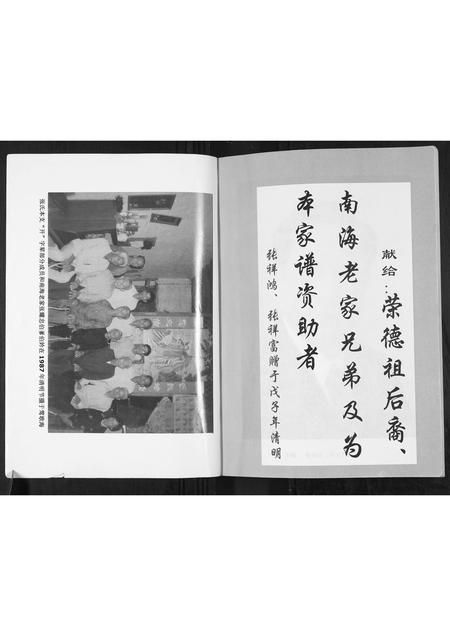 献给：荣德祖后裔、
南海老家兄弟及为
本家谱资助者
张祥鸿、张祥富赠于戊子年清明
张氏本支“开”字辈部分成员和南海老家张耀志伯爹伯妗在1987年清明节摄于莺歌海